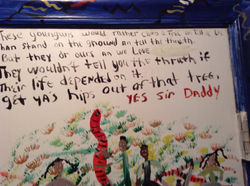 These younguns would rather climb a tree an tell a lie
than stand on the ground an tell the thruth.
But they or ours an we Love
They wouldn't tell you the thruth, if
Their life depended on it.
get ya's hips outa that tree,
YES SIR Daddy